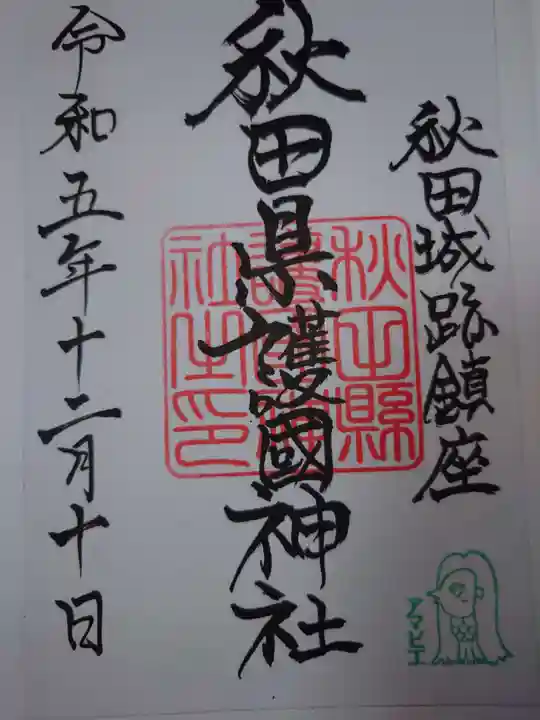 秋田城跡鎮座
秋田県護國神社
秋田縣護國神社之印
令和五年十二月十日
アマビエ